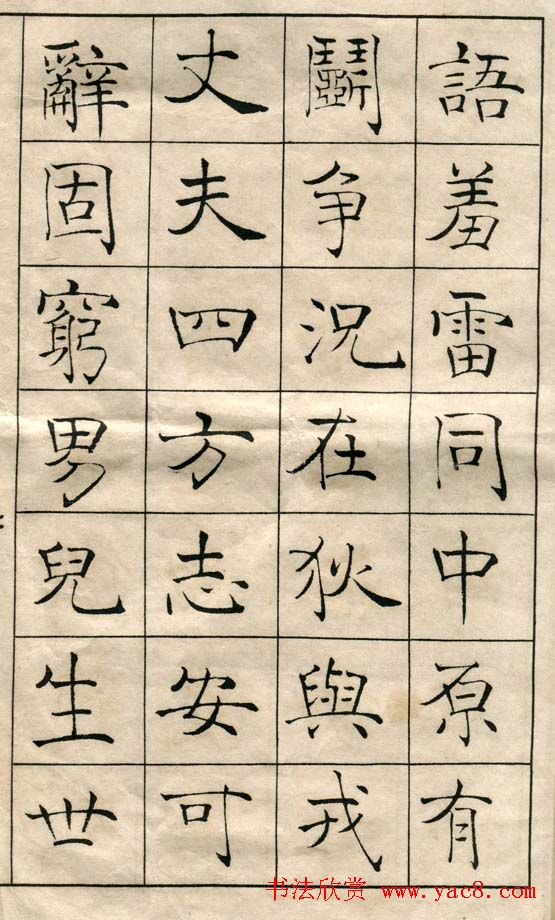 語羞雷同中原有
鬭争況在狄與戎
丈夫四方志安可
辭固窮男兒生世
书法欣赏 www.yac8.com